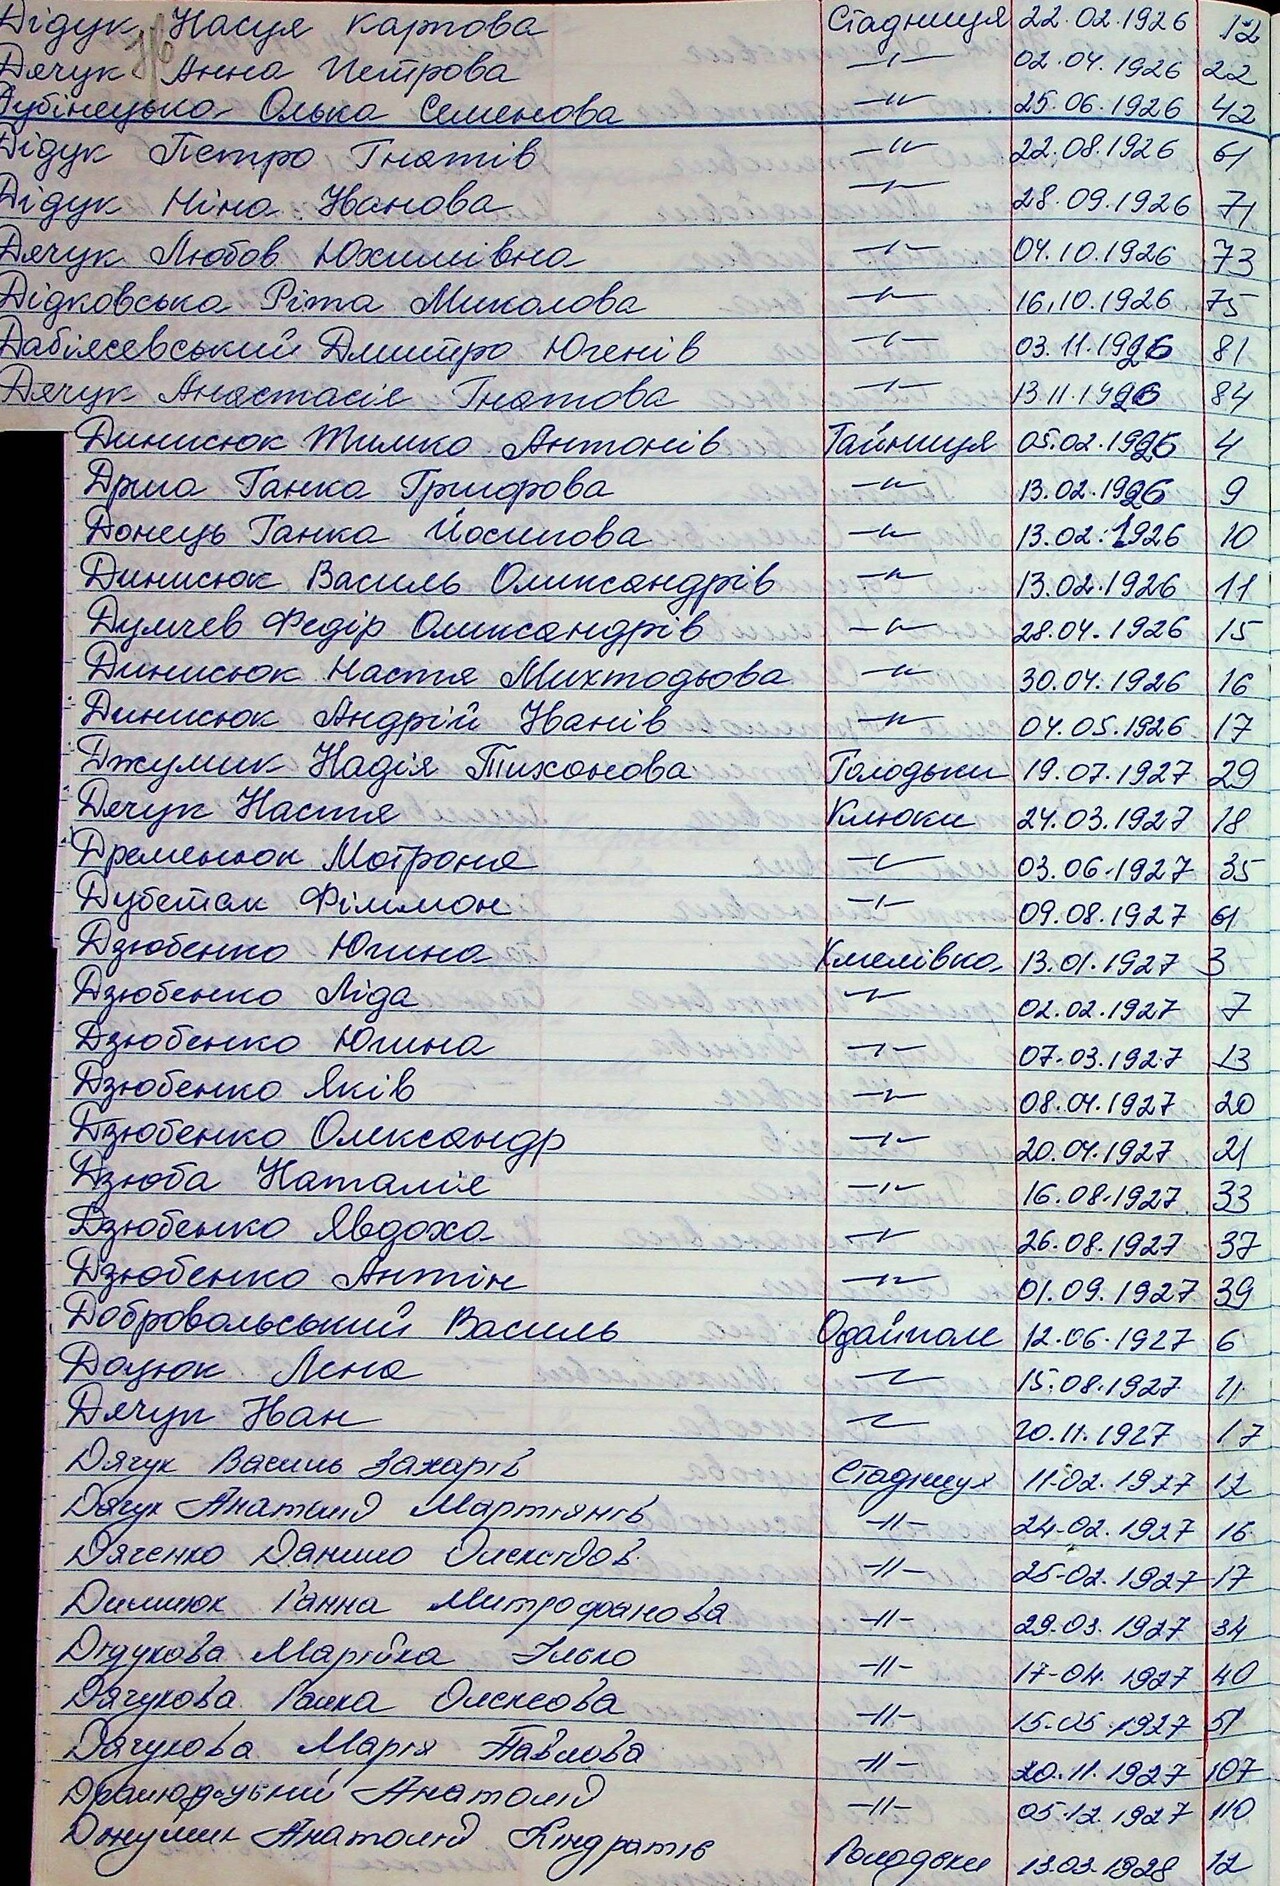 Дідук Насця Карпова Стадниця 22.02.1926 12
Дячук Анна Петрова -"- 02.04.1926 22
Дубінецька Олька Семенова -"- 25.06.1926 42
Дідук Петро Гнатів -"- 22.08.1926 61
Дідук Ніна Іванова -"- 28.09.1926 71
Дячук Любов Юхимівна -"- 04.10.1926 73
Дідковська Ріта Миколова -"- 16.10.1926 75
Дмитро Югенів -"- 03.11.1926 81
Дячук Анастасія Гнатова -"- 13.11.1926 84
Динисюк Тимко Антонів Тайниця 05.02.1926 4
Дриа Ганка Григорова -"- 13.02.1926 9
Донець Ганка Йосипова -"- 13.02.1926 10
Динисюк Василь Олександрів -"- 13.02.1926 11
Думчев Федір Олександрів -"- 28.04.1926 15
Динисюк Настя Михтодьова -"- 30.04.1926 16
Динисюк Андрій Іванів -"- 04.05.1926 17
Джумик Надія Тихонова Голодьки 19.07.1927 29
Дячук Настя Клюки 24.03.1927 18
Дременюк Мотроня -"- 03.06.1927 35
Дубстак Філімон -"- 09.08.1927 61
Дзюбенко Югина Кмелівка 13.01.1927 3
Дзюбенко Ліда -"- 02.02.1927 7
Дзюбенко Югина -"- 07.03.1927 13
Дзюбенко Яків -"- 08.04.1927 20
Дзюбенко Олександр -"- 20.04.1927 21
Дзюба Наталія -"- 16.08.1927 33
Дзюбенко Явдоха -"- 26.08.1927 37
Дзюбенко Антін -"- 01.09.1927 39
Добровольський Василь Одайполе 12.06.1927 6
Доцюк Лєна -"- 15.08.1927 11
Дячук Іван -"- 20.11.1927 17
Дячук Василь Захарів Стадниця 11-02.1927 12
Дячук Анатолій Мартіянів -"- 24-02.1927 16
Дяченко Данило -"- 25-02.1927 17
Ганна Митрофанова -"- 29.03.1927 34
Дідукова Марійка Ілько -"- 17-04.1927 40
Дячукова Галка Олексова -"- 15.05.1927 51
Дячукова Марія Павлова -"- 20.11.1927 107
Анатолій -"- 05.12.1927 110
Джумик Анатолій Кіндратів Голодьки 13.03.1928 12